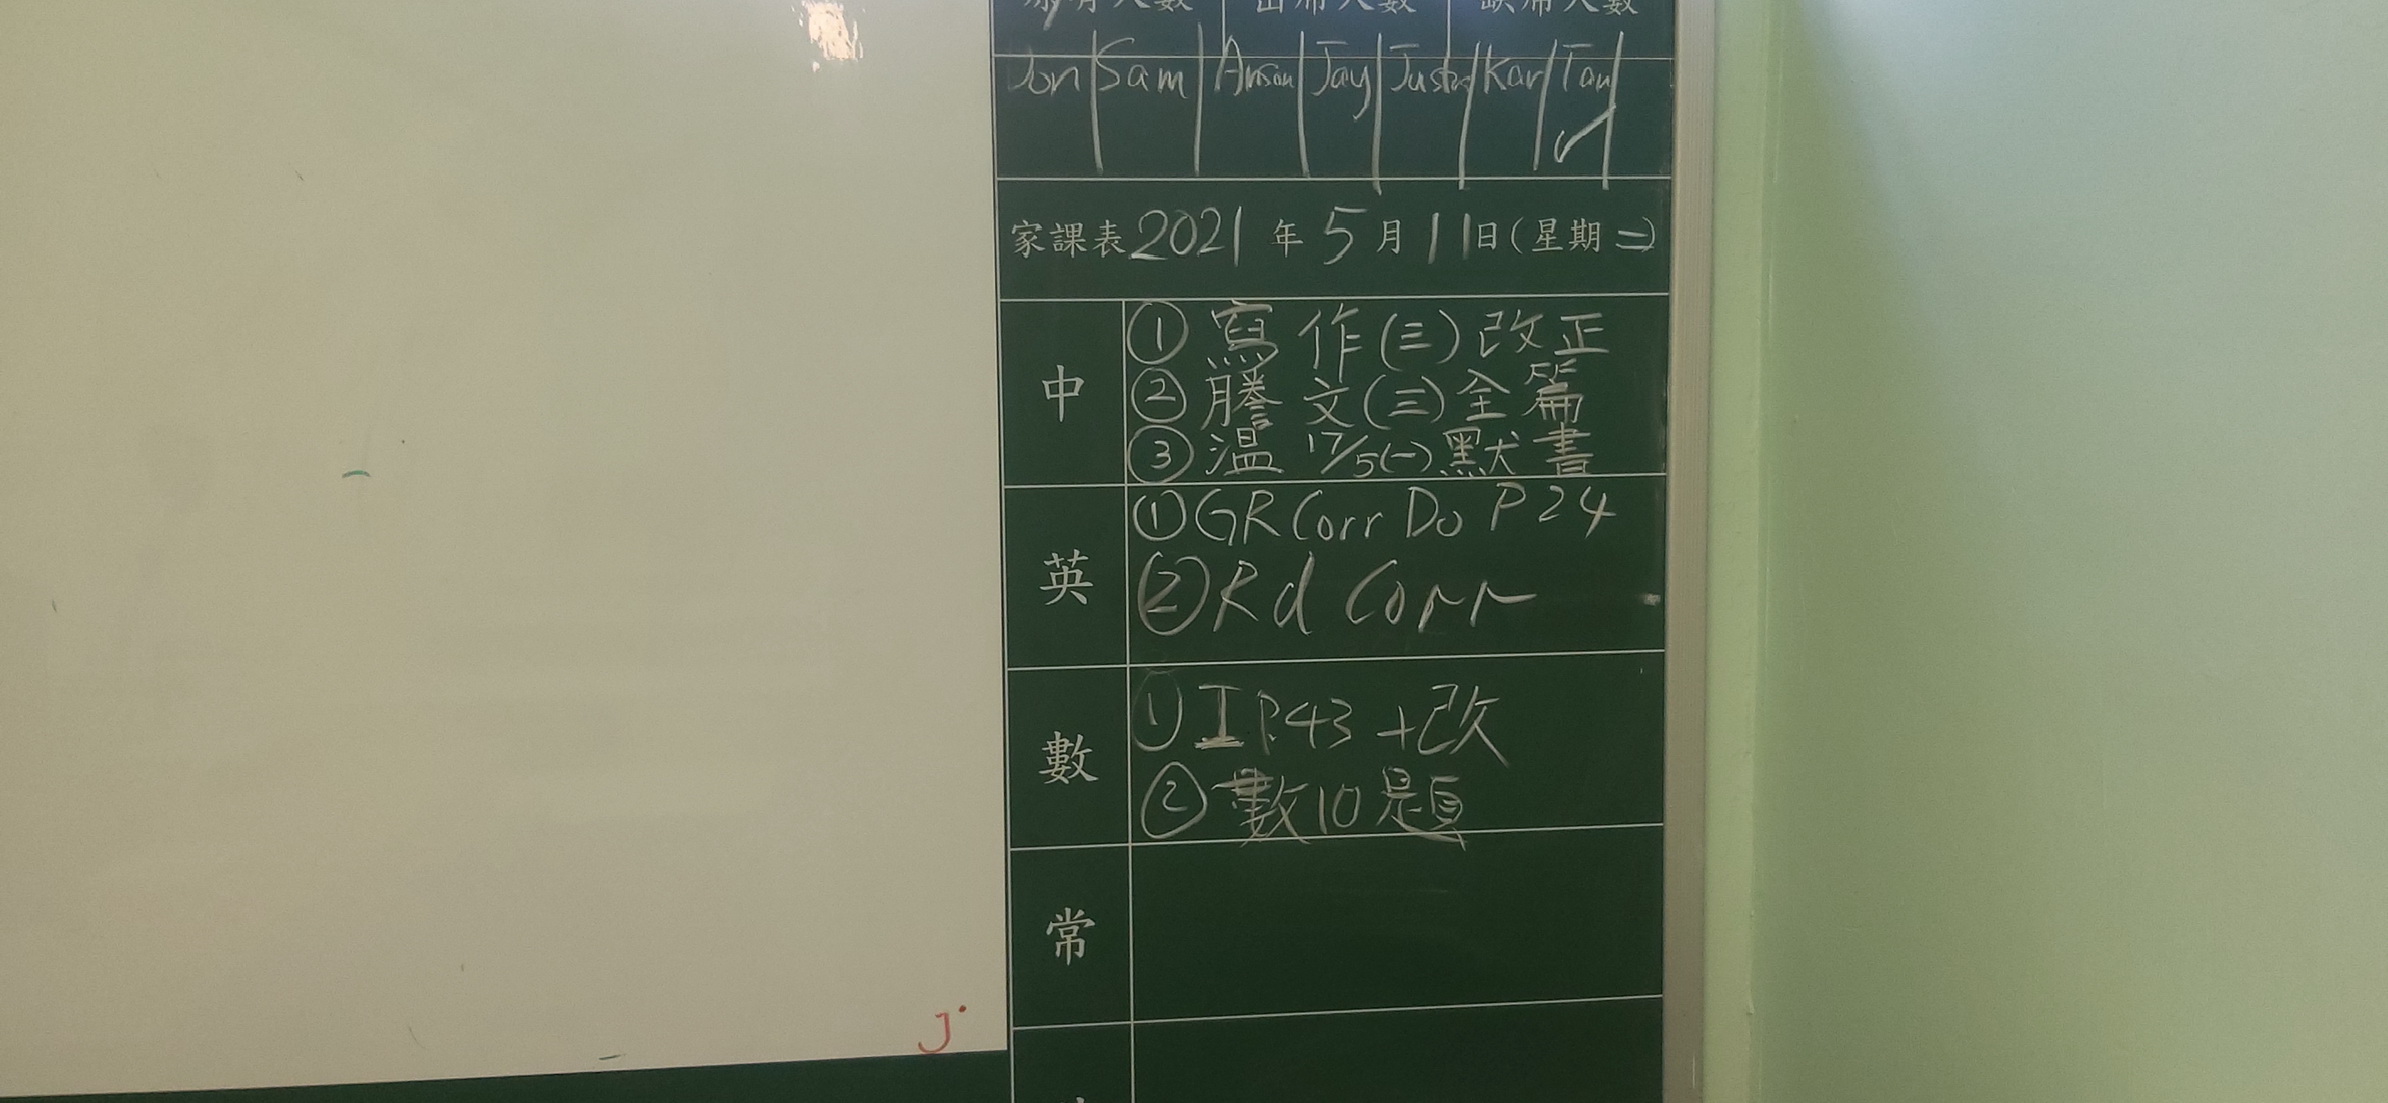 應有人數 出席人數 缺席人數
Jon Sam Anson Jay Justin Kar Tan
家課表 2021 年 5 月 11 日(星期二)
中
① 寫作(三)改正
② 謄文(三)全篇
③ 溫 17/5(一)默書
英
① GR Corr Do P24
② Rd Corr
數
① I P.43 +改
② 數10題
常
J